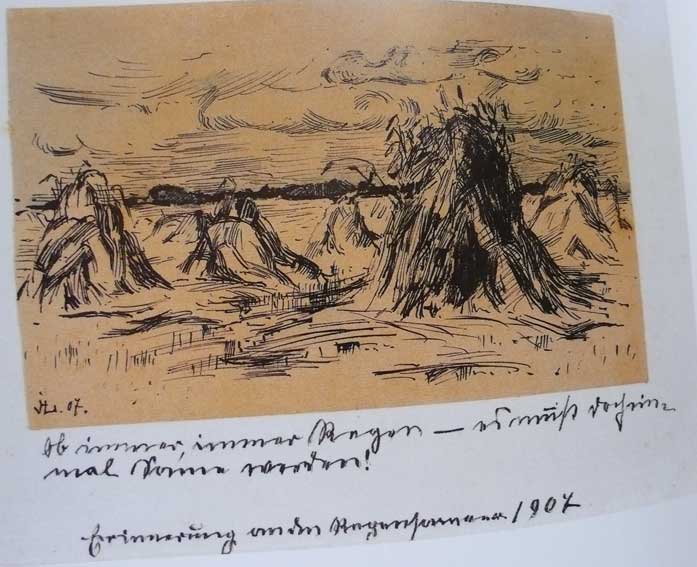 H. 07.
Ob immer, immer Regen – es muß doch ein-
mal Sonne werden!
Erinnerung an den Regensommer 1907